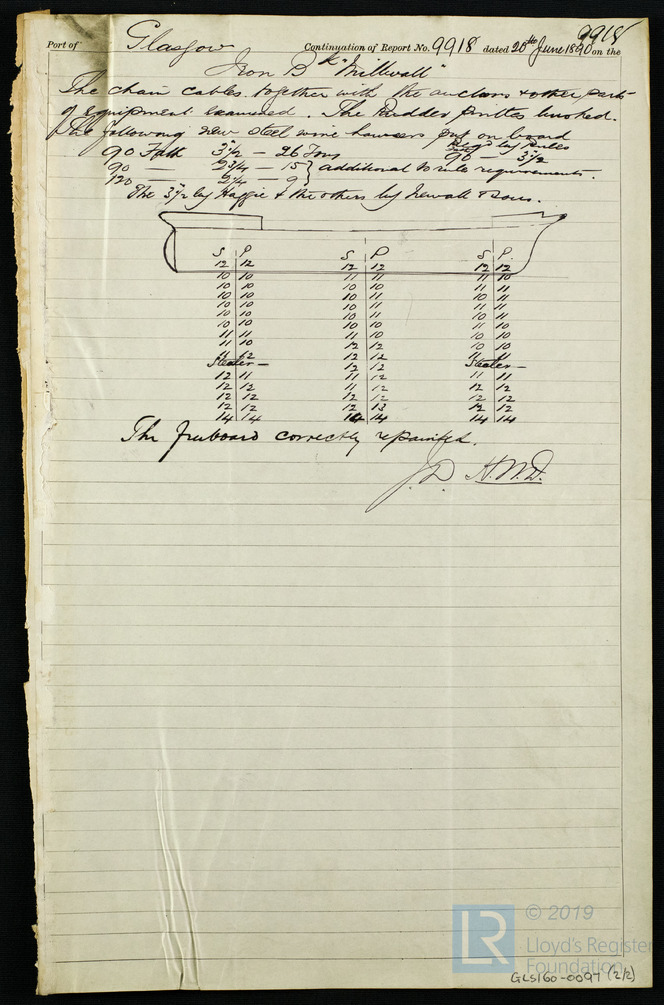 9918
Port of Glasgow Continuation of Report No. 9918 dated 20th June 1890 on the
Iron Bk "Millwall"
The chain cables together with the anchors & other parts
of equipment examined. The Rudder pintles hooked.
The following new steel wire hawsers put on board
90 Fath 3½ — 26 Tons
Reqd by Rules
90 — 3½
90 — 2¾ — 15 } additional to rule requirements.
120 — 2¼ — 9
The 3½ by Haggie & the others by Newall & Sons.
S P S P S P
12 12 12 12 12 12
10 10 11 11 11 10
10 10 10 11 11 11
10 10 10 11 10 11
10 10 10 11 11 11
10 10 10 11 10 10
10 10 10 10 11 10
11 11 11 11 10 10
11 10 12 12 10 10
12 12 12 11 11
Stealer — 12 12 Stealer —
12 11 11 12 11 11
12 12 11 12 12 12
12 12 12 12 12 12
12 12 12 13 12 12
14 14 14 14 14 14
The Freeboard correctly repainted.
J.D. H.M.D.
LR © 2019
Lloyd's Register
Foundation
GLS160-0097 (2/2)